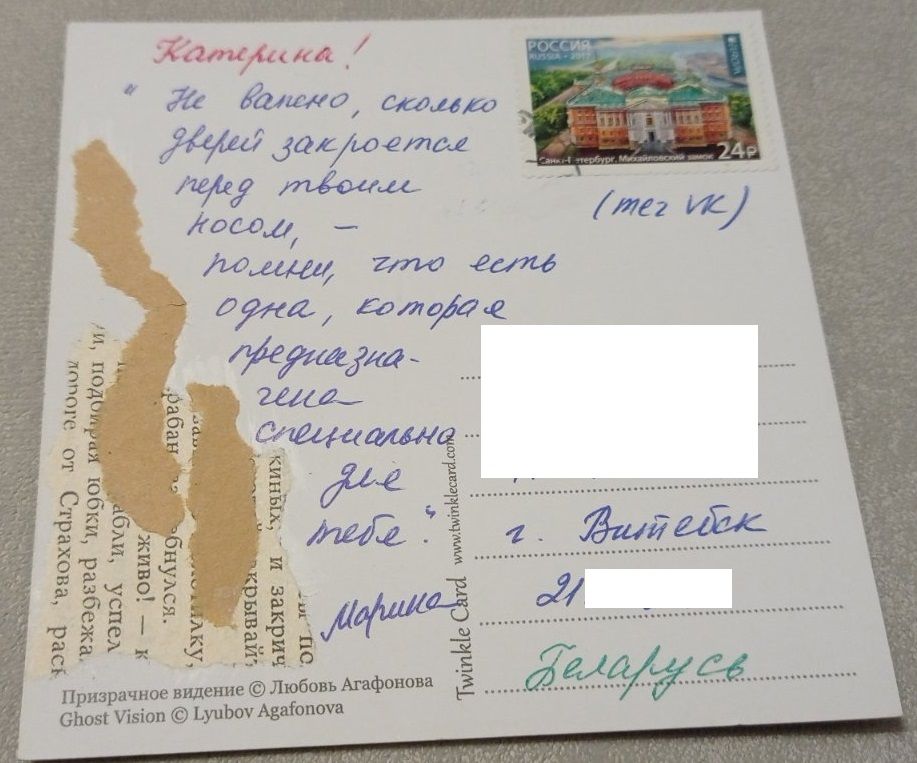 Катерина!
" Не важно, сколько
дверей закроется
перед твоим
носом, –
помни, что есть
одна, которая
предназна-
чена
специально
для
тебя."
Марина
РОССИЯ
RUSSIA • 2017
EUROPA
Санкт-Петербург. Михайловский замок
24₽
(тег VK)
г. Витебск
21
Беларусь
Twinkle Card www.twinklecard.com
и, подбирая юбки, разбежа
дороге от Страхова, раск
абли, успел
живо! — к
рабан
бнулся.
илку,
крывай,
киных, и закрич
Призрачное видение © Любовь Агафонова
Ghost Vision © Lyubov Agafonova